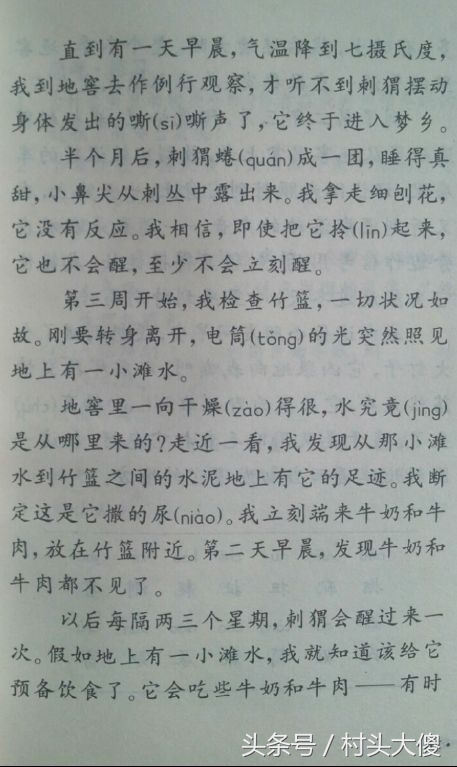 直到有一天早晨，气温降到七摄氏度，
我到地窖去作例行观察，才听不到刺猬摆动
身体发出的嘶(sī)嘶声了，它终于进入梦乡。
半个月后，刺猬蜷(quán)成一团，睡得真
甜，小鼻尖从刺丛中露出来。我拿走细刨花，
它没有反应。我相信，即使把它拎(līn)起来，
它也不会醒，至少不会立刻醒。
第三周开始，我检查竹篮，一切状况如
故。刚要转身离开，电筒(tǒng)的光突然照见
地上有一小滩水。
地窖里一向干燥(zào)得很，水究竟(jìng)
是从哪里来的？走近一看，我发现从那小滩
水到竹篮之间的水泥地上有它的足迹。我断
定这是它撒的尿(niào)。我立刻端来牛奶和牛
肉，放在竹篮附近。第二天早晨，发现牛奶和
牛肉都不见了。
以后每隔两三个星期，刺猬会醒过来一
次。假如地上有一小滩水，我就知道该给它
预备饮食了。它会吃些牛奶和牛肉——有时
头条号 / 村头大傻